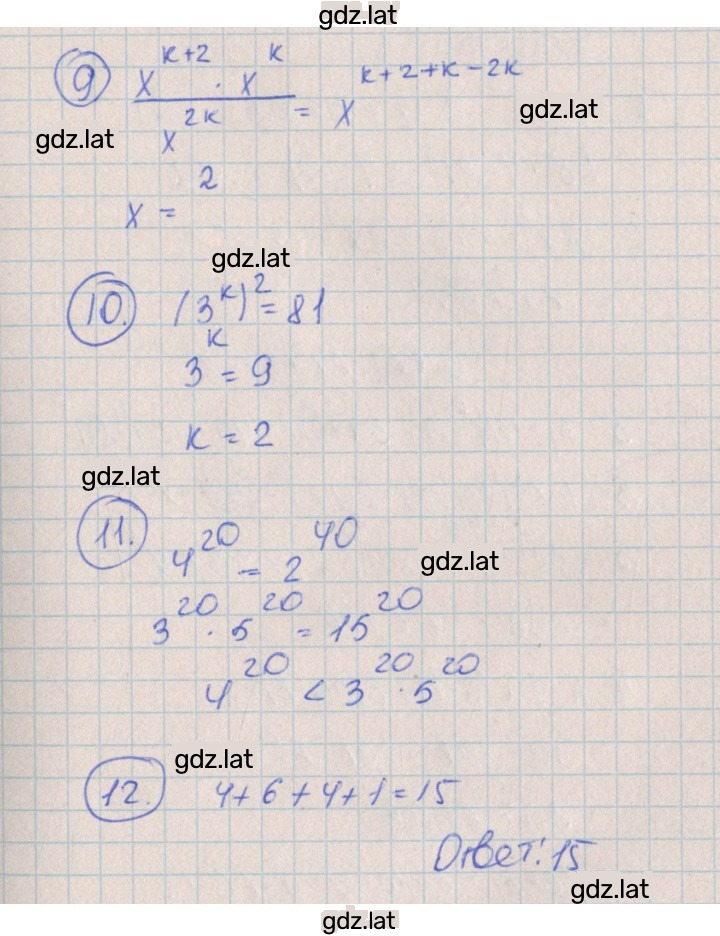 gdz.lat
9 x^(k+2) · x^k / x^(2k) = x^(k+2+k-2k)
gdz.lat
gdz.lat
x = ^2
gdz.lat
10. (3^k)^2 = 81
3^k = 9
k = 2
gdz.lat
11. 4^20 = 2^40
gdz.lat
3^20 · 5^20 = 15^20
4^20 < 3^20 · 5^20
gdz.lat
12. 4+6+4+1=15
Ответ: 15
gdz.lat
gdz.lat